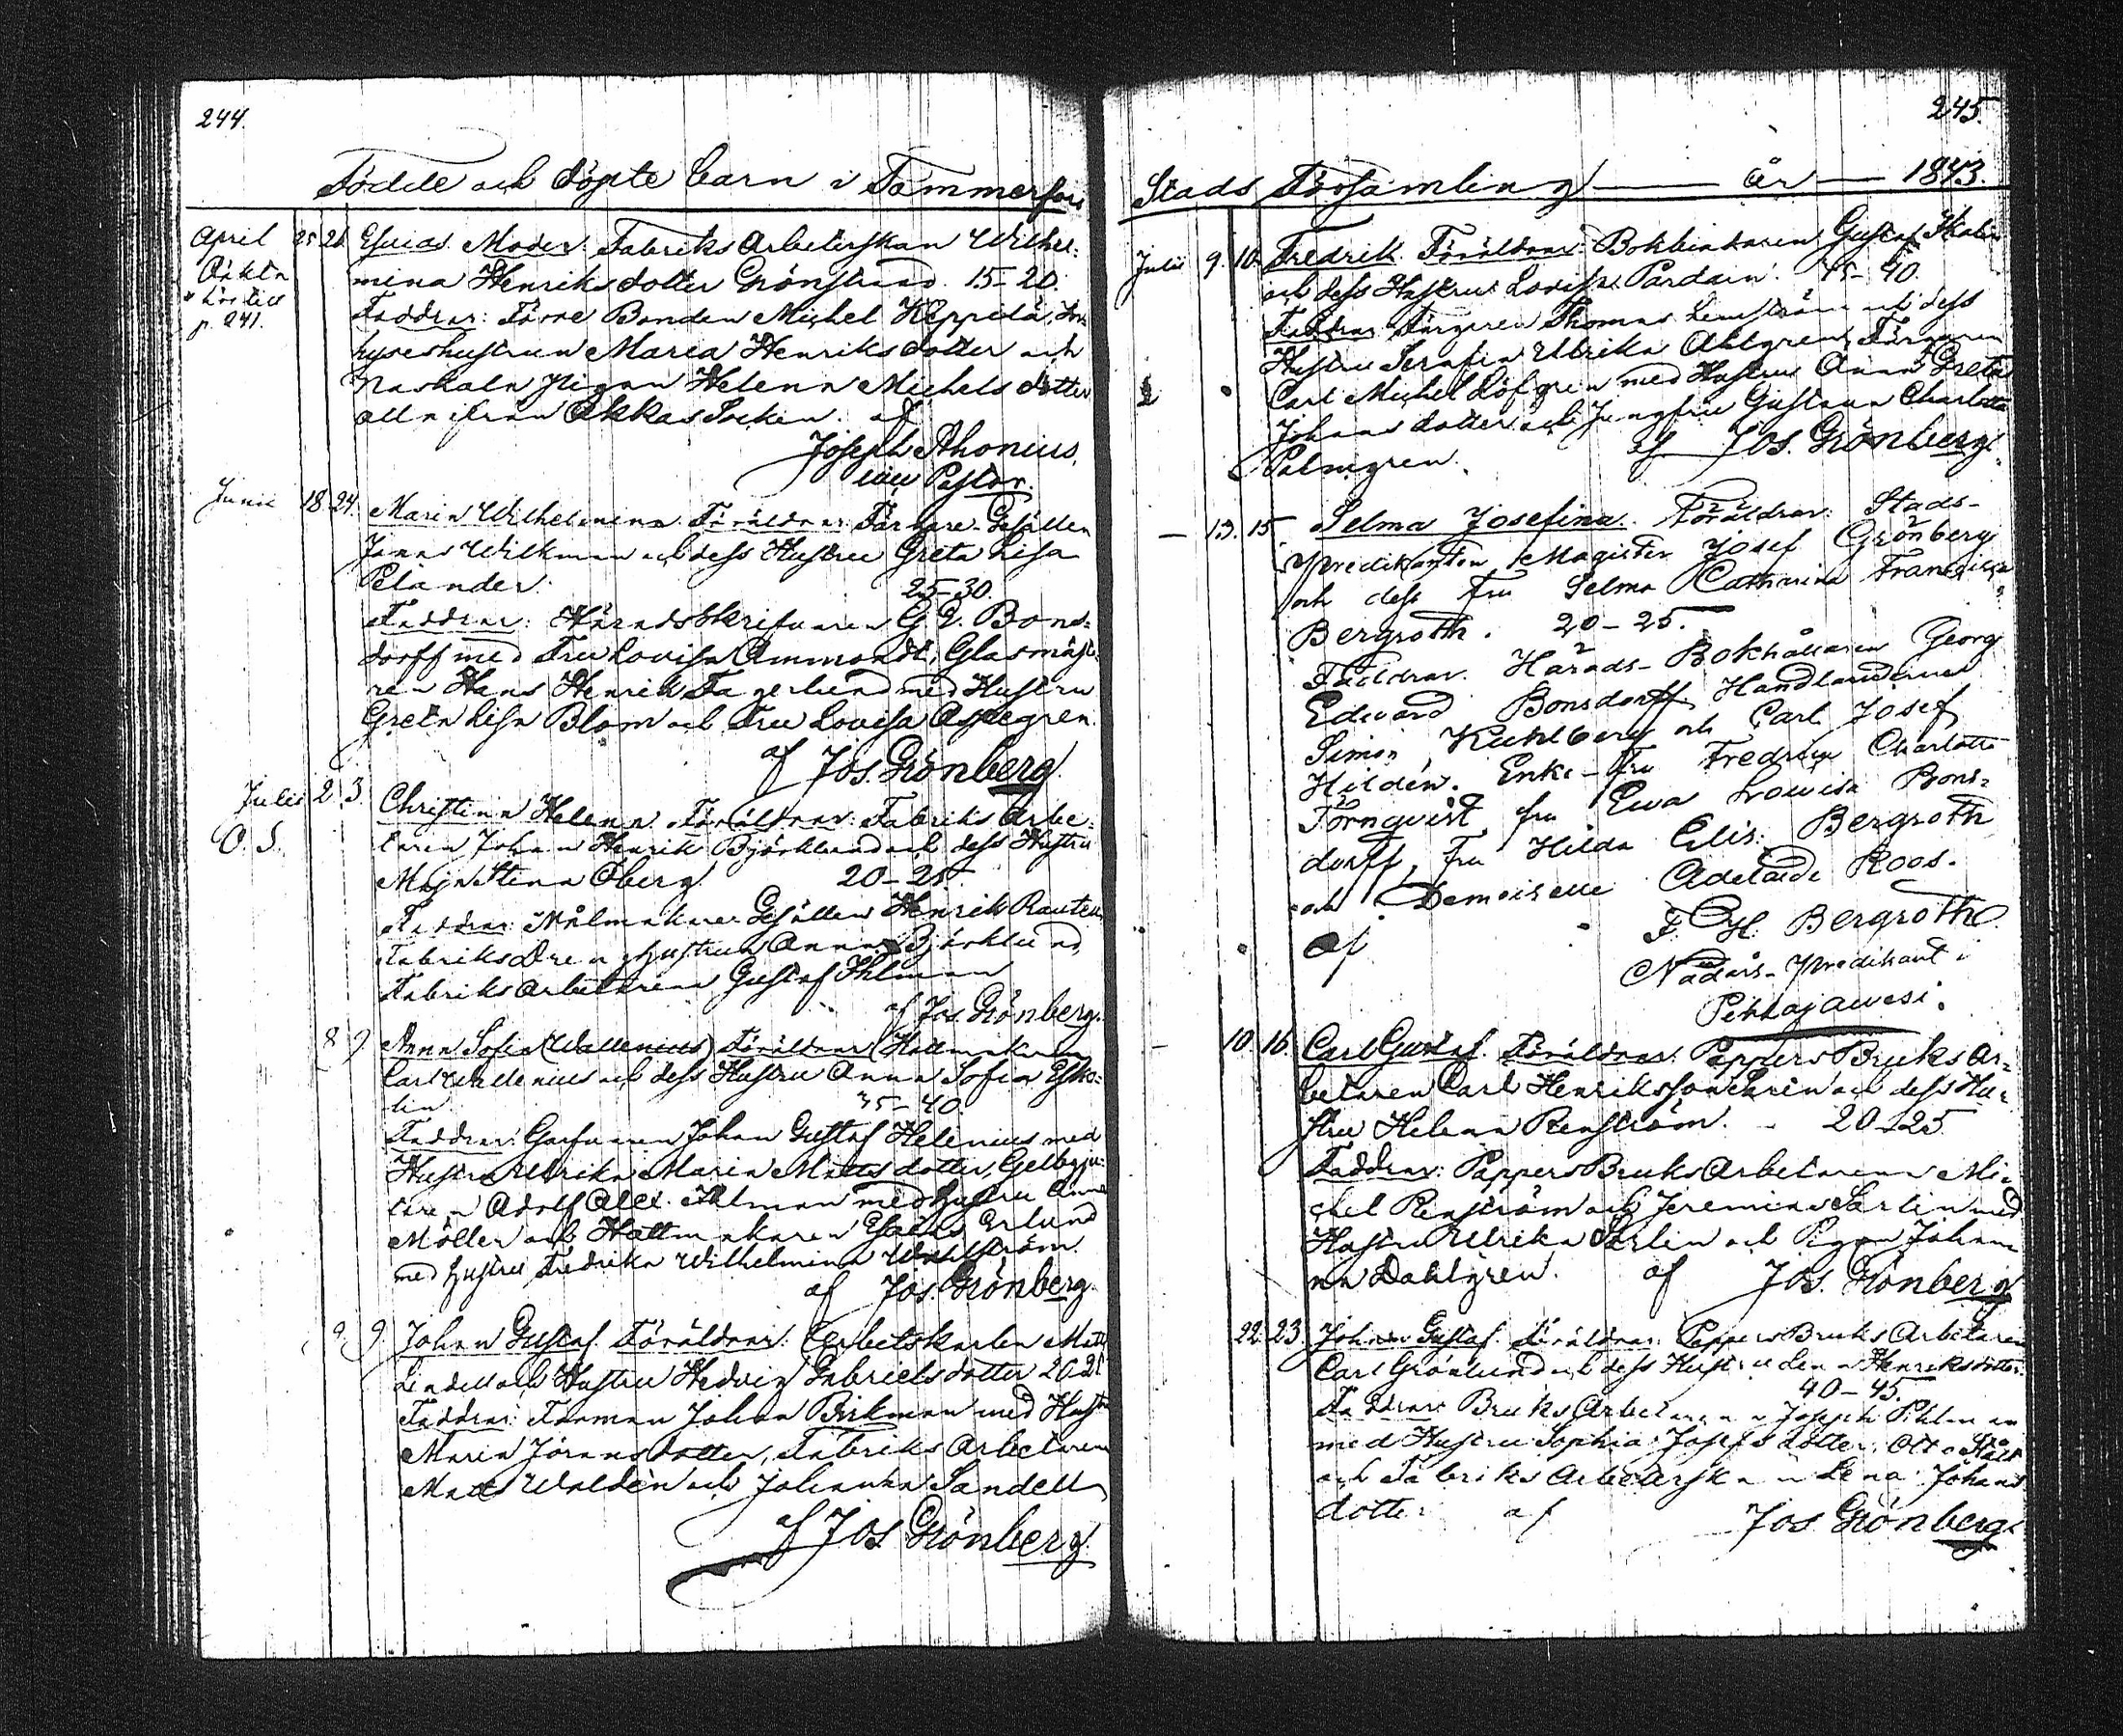 244.
Födde och döpte barn i Tammerfors
April 25 26 Esaias. Moder: Fabriks Arbeterskan Wilhel-
Oäkta mina Henriksdotter Grönstrand. 15-20.
p. 241. Faddrar: Förre Bonden Michel Köppilä, In-
hyseshustrun Maria Henriksdotter och
Pigan Helena Michelsdotter
alla ifrån Akkas Socken. af
Joseph Ahonius,
vice Pastor.
Junii 18 24. Maria Wilhelmina. Föräldrar: Färgare Gesällen
Jonas Wikman och dess Hustru Greta Lisa
Pelander. 25-30.
Faddrar: Häradsskrifvaren G. E. Bons-
dorff med Fru Lovisa Ammondt, Glasmäst-
ren Hans Henrik Fagerlund med Hustru
Greta Lisa Blom och Fru Lovisa Aspegren.
af Jos. Grönberg.
Julii 2 3. Christina Helena. Föräldrar: Fabriks Arbe-
O. S. taren Johan Henrik Björklund och dess Hustru
Maja Stina Öberg. 20-25.
Faddrar: Målmakare Gesällen Henrik Rautell
Fabriks Dreng hustrun Anna Björklund,
Fabriks Arbetaren Gustaf Ihlman
af Jos. Grönberg.
8 9 Anna Sofia (Wallenius) Föräldrar: Hattmakaren
Carl Wallenius och dess Hustru Anna Sofia Esko-
lin 35-40
Faddrar: Garfvaren Johan Gustaf Helenius med
Hustru Ulrika Maria Mattsdotter, Gelbgju-
taren Adolf Alex. Ahlman med hustru Anna
Möller och Hattmakaren Esaias Erlund
med hustru Fredrika Wilhelmina Wahlström.
af Jos. Grönberg.
9. 9. Johan Gustaf. Föräldrar: Arbetskarlen Matts
Lindell och Hustru Hedvig Gabrielsdotter 20-25
Faddrar: Forman Johan Birkman med Hustru
Maria Jöransdotter, Fabriks Arbetaren
Matts Walden och Johanna Sandell
af Jos Grönberg.
245.
Stads Församling år 1843.
Julii 9. 10. Fredrik. Föräldrar: Bokbindaren Gustaf
och dess Hustru Lovisa Pardain. 35-40.
Faddrar: Färgeren Thomas Lindström och dess
Hustru Serafia Ulrika Ahlgren, Färgaren
Carl Michel Löfgren med Hustru Anna Greta
Johansdotter och Jungfru Gustava Charlotta
Palmgren. af Jos. Grönberg.
— 13. 15. Selma Josefina. Föräldrar: Stads-
Predikanten, Magister Josef Grönberg
och dess Fru Selma Catharina Francisca
Bergroth. 20-25.
Faddrar. Härads-Bokhållaren Georg
Edvard Bonsdorff, Handlanderne
Simon Kuhlberg och Carl Josef
Hildén. Enke-Fru Fredrika Charlotta
Törnqvist, fru Ewa Lowisa Bons-
dorff, Fru Hilda Elis: Bergroth
och Demoiselle Adelaide Roos.
af F. H. Bergroth
Nådårs-Predikant i
Pihlajawesi.
— 10. 16. Carl Gustaf. Föräldrar: Pappers Bruks Ar-
betaren Carl Henriksson och dess Hu-
stru Helena Renström. 20-25
Faddrar: Pappers Bruks Arbetarene Mi-
chel Renström och Jeremias Sarlin med
Hustru Ulrika Sarlin och Pigan Johan-
na Dahlgren. af Jos. Grönberg
22. 23. Johan Gustaf. Föräldrar: Pappers Bruks Arbetaren
Carl Grönlund och dess Hustru Lena Henriksdotter.
40-45.
Faddrar: Bruks Arbetarene Joseph Pihlman
med Hustru Sophia Josefsdotter, Otto Ståhl
och Fabriks Arbeterskan Lena Johans
dotter af Jos Grönberg.